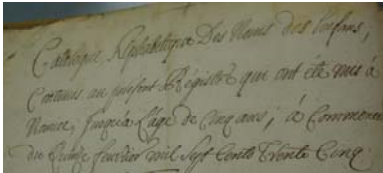 Catalogue Alphabetique Des Noms des Enfans,
Contenus au présent Régistre qui ont été mis à
Nourice, jusqu'à l'âge de Cinq ans, à Commencer
du Quinze fevrier mil Sept Cents Trente Cinq.